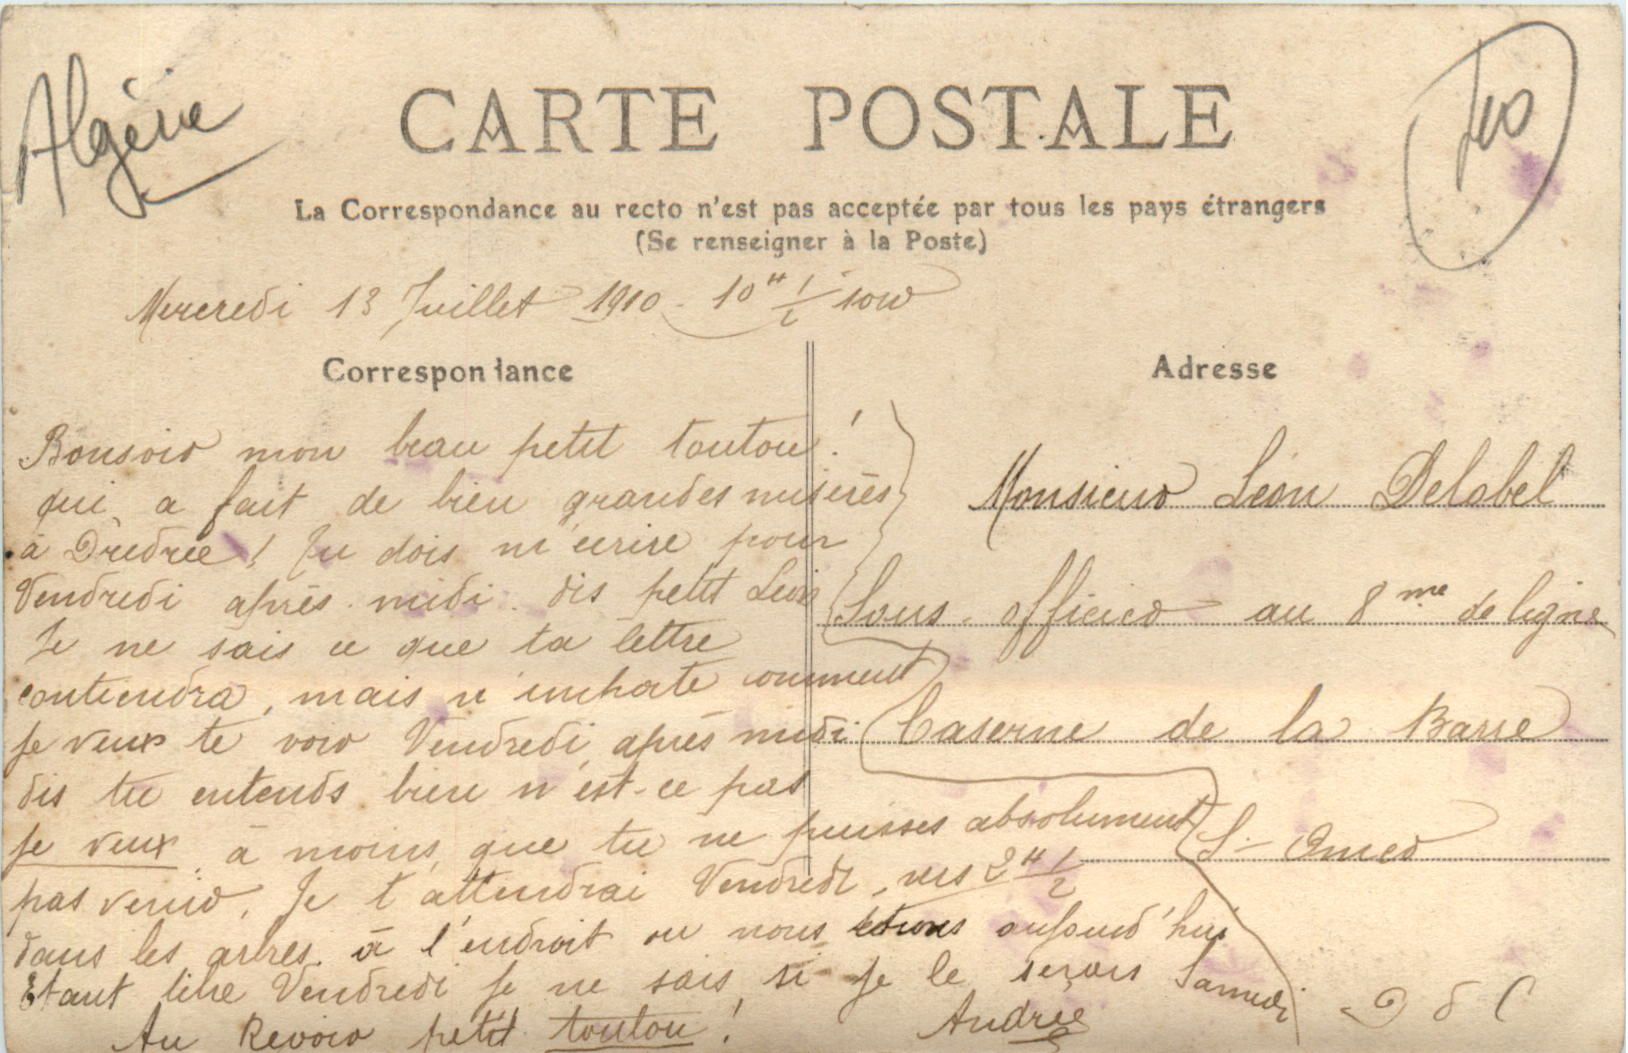 Algérie
CARTE POSTALE
La Correspondance au recto n'est pas acceptée par tous les pays étrangers
(Se renseigner à la Poste)
Mercredi 13 Juillet 1910 - 10 H 1/2 soir
Correspondance
Bonsoir mon beau petit toutou !
qui a fait de bien grandes misères
à Drédrée ! Tu dois m'écrire pour
Vendredi après-midi. dis petit Léon
Je ne sais ce que ta lettre
contiendra, mais n'importe comment
je veux te voir Vendredi après midi
dis tu entends bien n'est-ce pas
je veux à moins que tu ne puisses absolument
pas venir. Je t'attendrai Vendredi, vers 2 H 1/2
dans les arbres. à l'endroit ou nous étions aujourd'hui
Etant libre Vendredi je ne sais si je le serais Samedi
Au Revoir petit toutou !
Andrée
Adresse
Monsieur Léon Delabel
Sous-officier au 8me de ligne
Caserne de la Barre
St-Omer
P d C